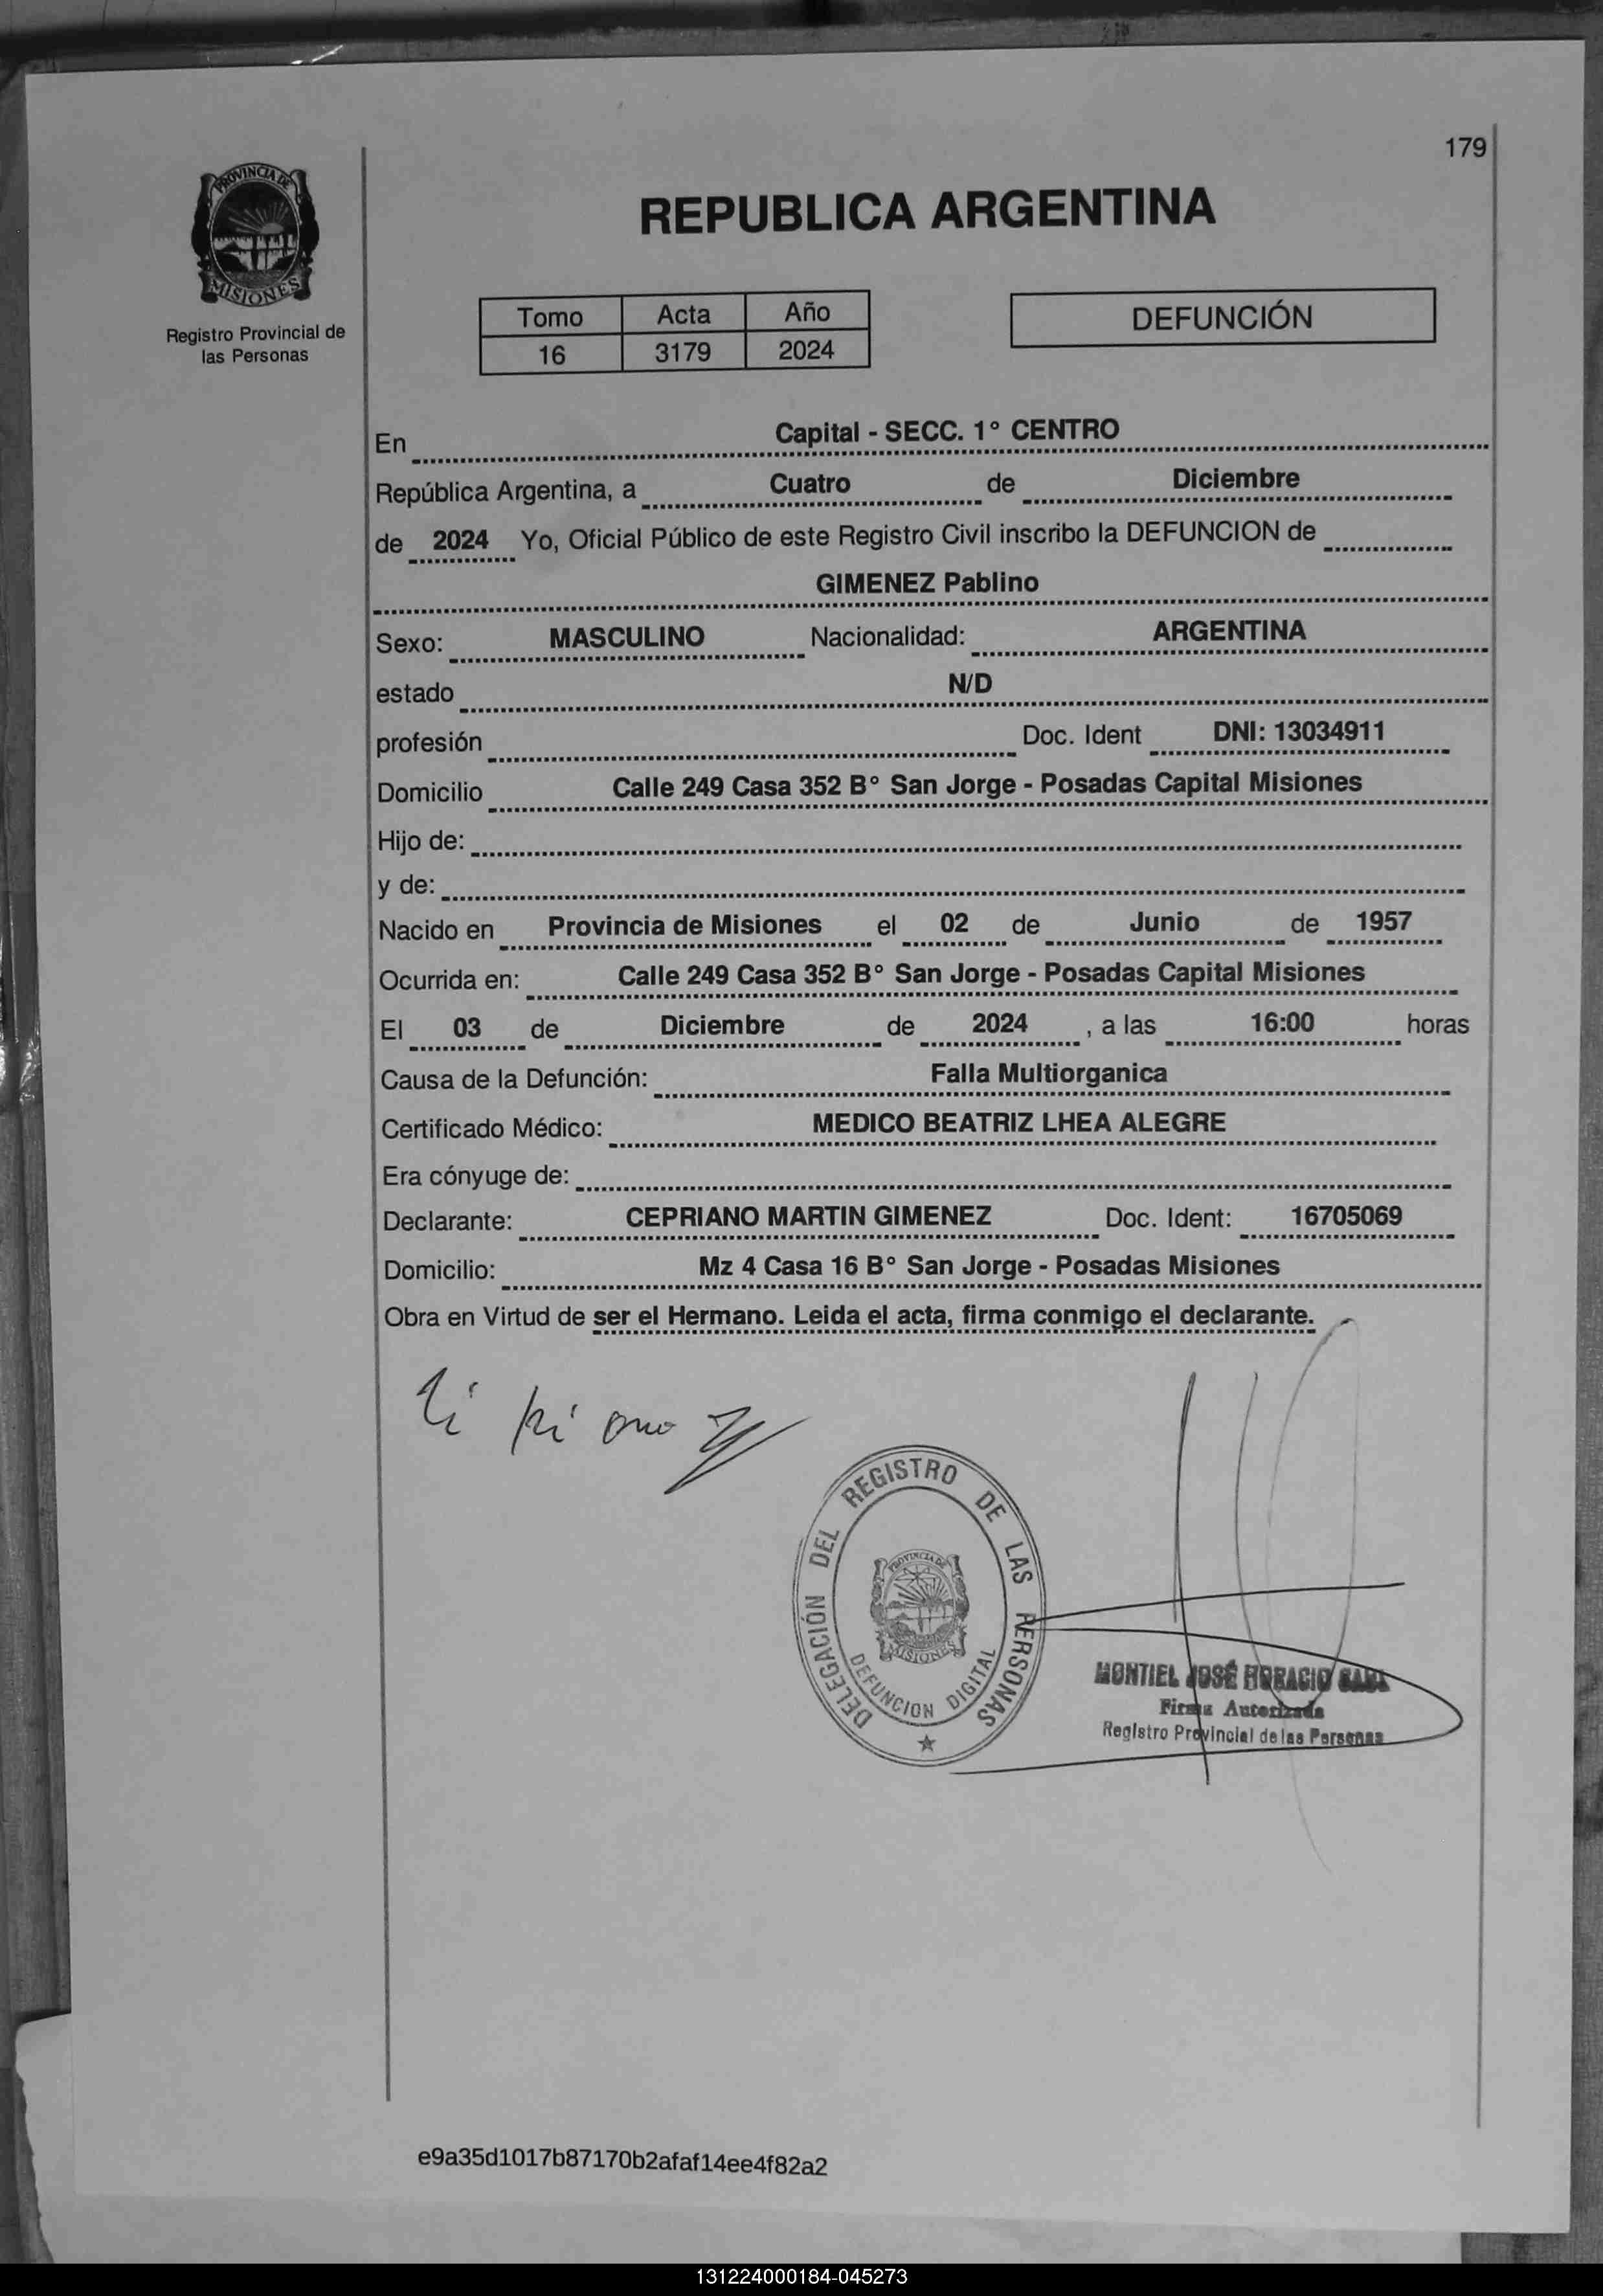 179
PROVINCIA DE
MISIONES
Registro Provincial de
las Personas
REPUBLICA ARGENTINA
Tomo Acta Año
16 3179 2024
DEFUNCIÓN
En Capital - SECC. 1° CENTRO
República Argentina, a Cuatro de Diciembre
de 2024 Yo, Oficial Público de este Registro Civil inscribo la DEFUNCION de
GIMENEZ Pablino
Sexo: MASCULINO Nacionalidad: ARGENTINA
estado N/D
profesión Doc. Ident DNI: 13034911
Domicilio Calle 249 Casa 352 B° San Jorge - Posadas Capital Misiones
Hijo de:
y de:
Nacido en Provincia de Misiones el 02 de Junio de 1957
Ocurrida en: Calle 249 Casa 352 B° San Jorge - Posadas Capital Misiones
El 03 de Diciembre de 2024 , a las 16:00 horas
Causa de la Defunción: Falla Multiorganica
Certificado Médico: MEDICO BEATRIZ LHEA ALEGRE
Era cónyuge de:
Declarante: CEPRIANO MARTIN GIMENEZ Doc. Ident: 16705069
Domicilio: Mz 4 Casa 16 B° San Jorge - Posadas Misiones
Obra en Virtud de ser el Hermano. Leida el acta, firma conmigo el declarante.
DELEGACIÓN DEL REGISTRO DE LAS PERSONAS
PROVINCIA DE
MISIONES
DEFUNCION DIGITAL
MONTIEL JOSÉ HORACIO
Firma Autorizada
Registro Provincial de las Personas
e9a35d1017b87170b2afaf14ee4f82a2
131224000184-045273